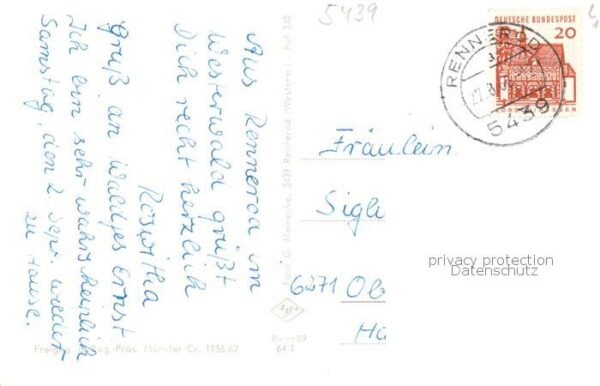 5439
Aus Rennerod im
Westerwald grüßt
Dich recht herzlich
Roswitha
Gruß an Waldges Ernst
Ich bin sehr wahrscheinlich
Samstag, den 2. Sept. wieder
zu Hause.
Foto G. Meinecke, 5439 Rennerod (Westerw.) Ruf 340
Freigeg. Reg.-Präs. Münster Cr. 1956/62
DEUTSCHE BUNDESPOST
20
RENNEROD
5439
Fräulein
Sigl
6271 Ob
Ha
privacy protection
Datenschutz